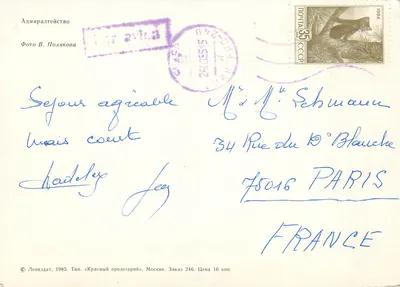 Адмиралтейство
Фото В. Полякова
Par avion
1984
ПОЧТА СССР
35
Séjour agréable
mais court
Mr Me Lehmann
34 Rue du Dr Blanche
75016 PARIS
FRANCE
© Лениздат, 1983. Тип. «Красный пролетарий», Москва. Заказ 246. Цена 10 коп.